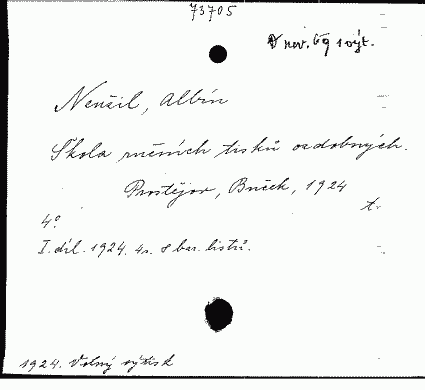 73705
V nov. 69 1 výt.
Neušil, Albín
Škola ručních tisků ozdobných.
Prostějov, Buček, 1924
t.
4°
I. díl. 1924. 4 s. 8 bar. listů.
1924. Volný výtisk